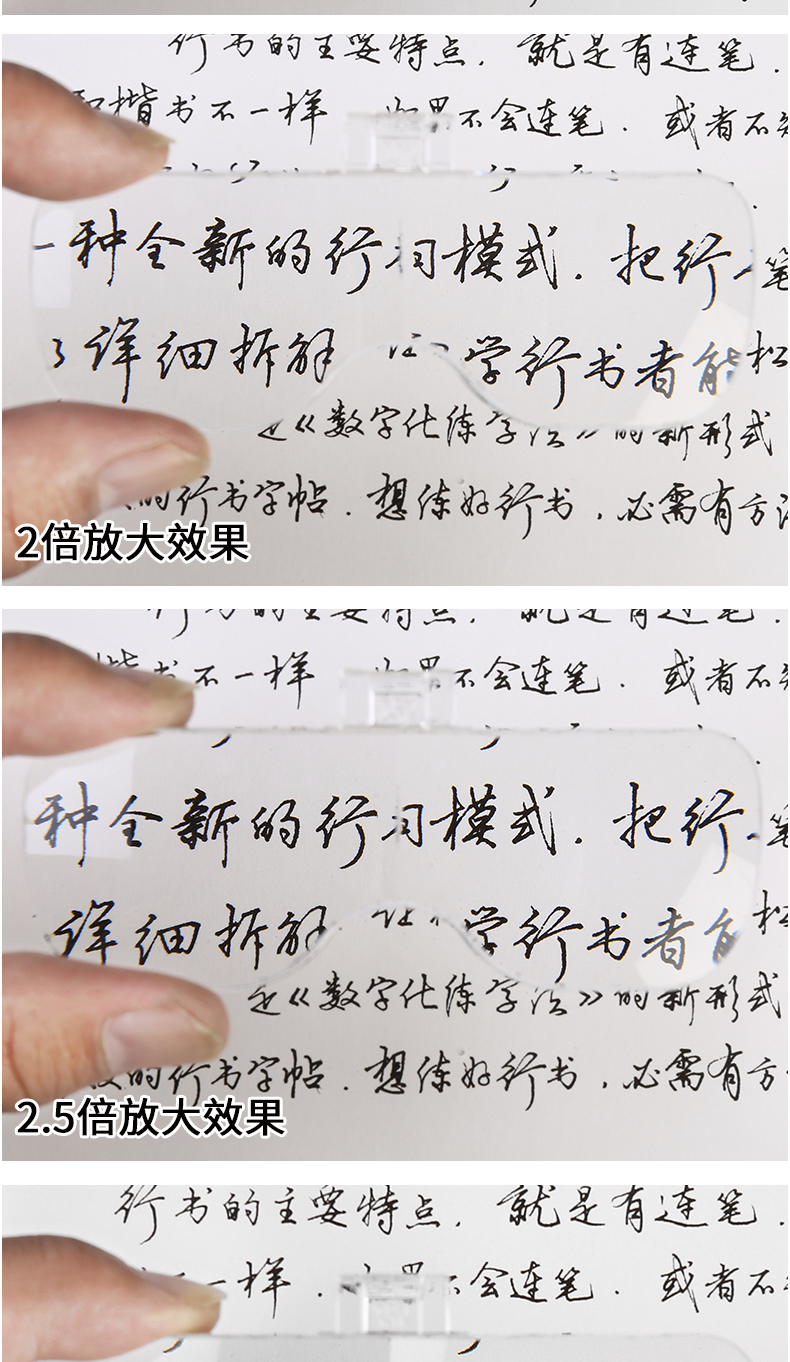 行书的主要特点，就是有连笔．
和楷书不一样 如果不会连笔．或者不
一种全新的行习模式．把行 笔
了详细拆解 让 学行书者能 松
《数字化练字法》的新形式
的行书字帖．想练好行书，必需有方法
2倍放大效果
行书的主要特点，就是有连笔．
楷书不一样 如果不会连笔．或者不
种全新的行习模式．把行 笔
详细拆解 让 学行书者能 松
《数字化练字法》的新形式
的行书字帖．想练好行书，必需有方
2.5倍放大效果
行书的主要特点，就是有连笔．
一样． 果不会连笔．或者不